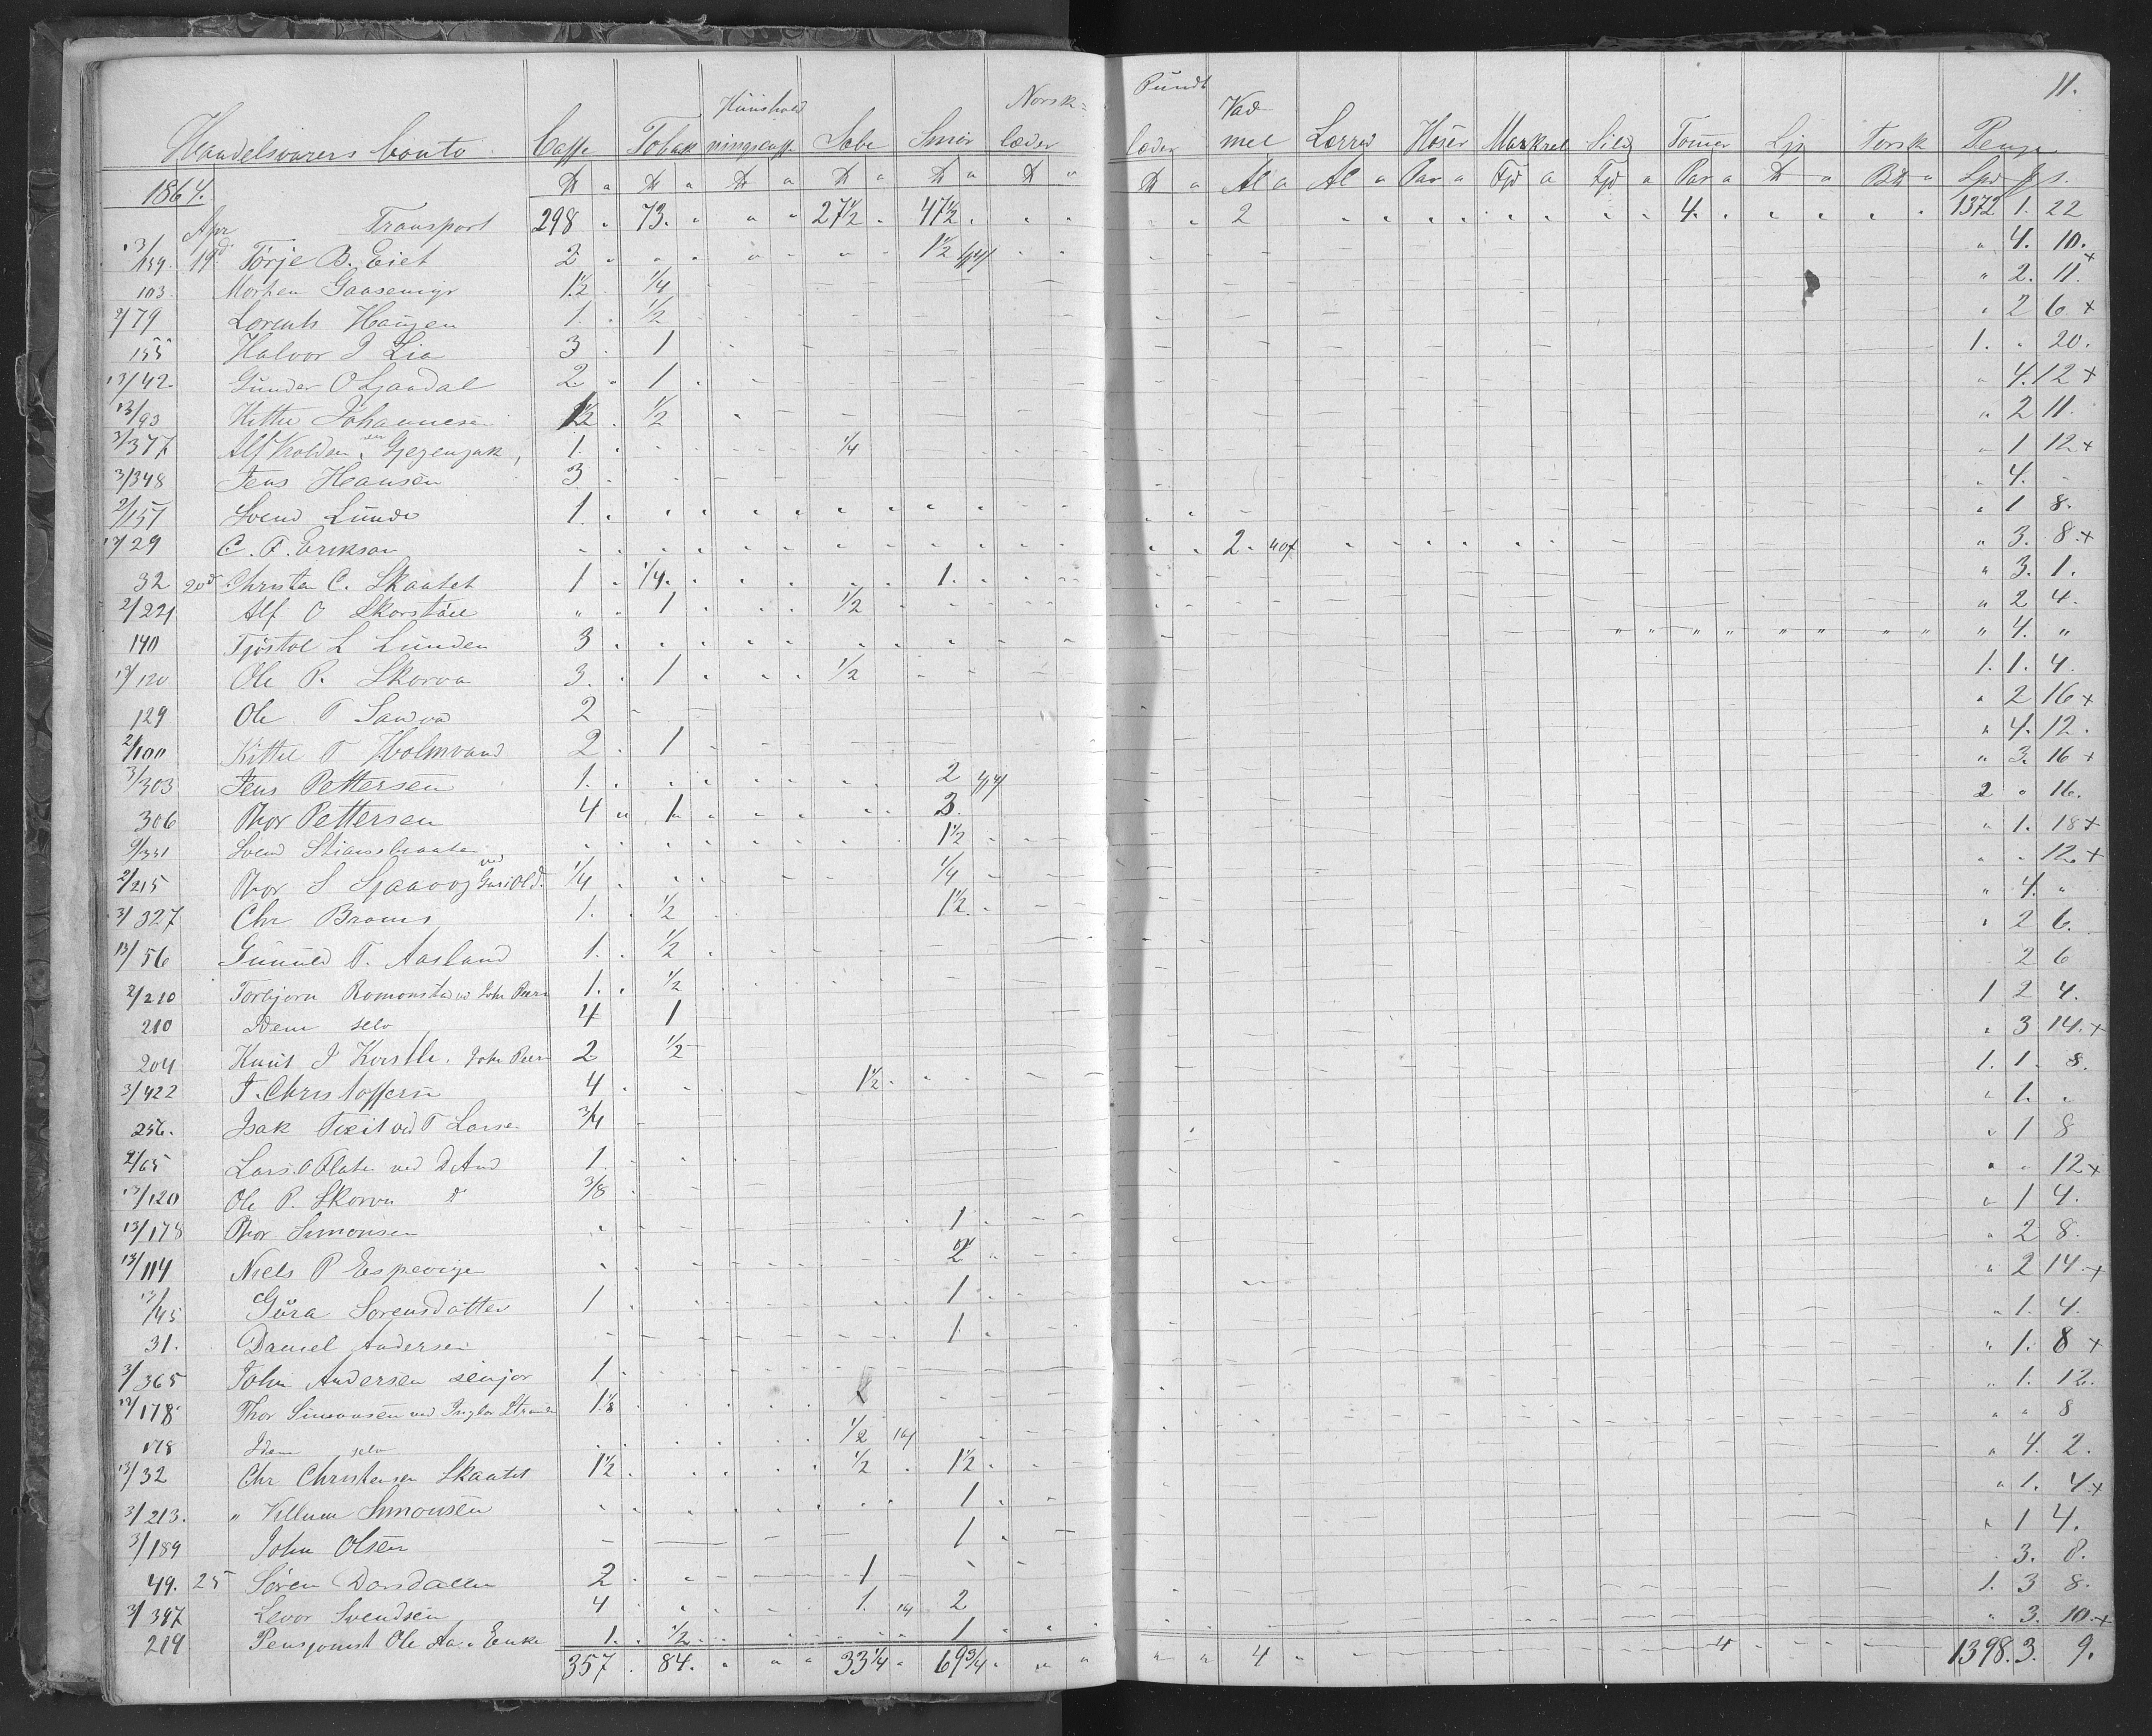 11.
Handelsvarers Conto Caffe Tobak Huusholdningscaffe Sæbe Smør Norsklæder Pundlæder Vadmel Lærred Hoser Markrel Sild Tømer Lys Torsk Penge
1864. ℔ a ℔ a ℔ a ℔ a ℔ a ℔ a ℔ a Al a Al a Par a Fjd a Fjd a Par a ℔ a a Spd s.
Apr Transport 298 73. " " 27 1/2 47 1/2 " " " " 2 4. 1372 1. 22
13/159. 19d Torje B. Eiet 2 1 1/2 " 4. 10.
103. Morten Gaasemyr 1 1/2 1/4 " 2. 11. +
2/79 Lorents Haugen 1. 1/2 " 2 6 +
155 Halvor P Lia 3 1 1. " 20.
13/42. Gunder O Ljandal 2. 1 " 4. 12 +
13/93 Kittel Johannesen 1 1/2 1/2 " 2 11.
3/377 Alf Kolds. 1. 1/4 " 1 12 +
3/348 Jens Hansen 3 " 4. -
2/157 Svend Lunde 1. " 1 8.
13/29 C. F. Erikson 2. " 3. 8. +
32 20d Christen C. Skaatet 1 1/4. 1. " 3. 1.
2/221 Alf O Skorstøil " 1 1/2 " 2 4.
140 Tjøstol L Lunden 3 " 4. "
13/120 Ole P. Skorva 3. 1 1/2 1. 1. 4.
129 Ole T Sandva 2 " 2 16 +
2/100 Kittel T Holmvand 2 1 " 4. 12.
3/303 Jens Pettersen 1. 2 " 3. 16 +
306 Thor Pettersen 4 1 3. 2 " 16.
9/331 Svend Stiansbraaten 1 1/2 " 1. 18 +
2/215 Thor S Sjaavog ved 1/4 1/4 " " 12. +
3/327 Chr Broms 1. 1/2 1 1/2 " 4. "
13/56 Gunuld T. Aasland 1. 1/2 " 2 6.
2/210 Torbjørn Romonstad ved John Peers 1. 1/2 2 6
210 Idem selv 4 1 1 2 4.
204 Knut J Kvistle. John Peers 2 1/2 " 3 14. +
3/422 J. Christoffersen 4 1 1/2 1. 1. 8.
256. Isak Tveit ved T Larsen 3/4 " 1. "
2/65 Lars O Flaten ved D And 1 " 1 8
13/120 Ole P. Skorva do 3/8 " " 12 +
13/178 Thor Simonsen 1 " 1 4.
13/114 Niels P Espevigen 2 " 2 8.
13/45 Gura Sørensdatter 1 1 " 2 14 +
31. Daniel Andersen 1. " 1. 4.
3/365 John Andersen senjor 1 " 1. 8 +
13/178 Thor Simonsen ved 1 1/8 " 1. 12.
178 Idem selv 1/2 " " 8
13/32 Chr Christensen Skaatet 1 1/2 1/2 1 1/2 " 4. 2.
3/213. " Villum Simonsen 1 " 1. 4 +
3/189 John Olsen 1 " 1 4.
49. 25 Søren Dorsdalen 2 1 3. 8.
3/397 Levor Svendsen 4 1. 2 1. 3 8.
219 Pensjonist Ole Aa. Enke 1. 1/2 1 " 3. 10. +
357 84. " " " 33 1/4 69 3/4 " " " " 4 4 1398. 3. 9.